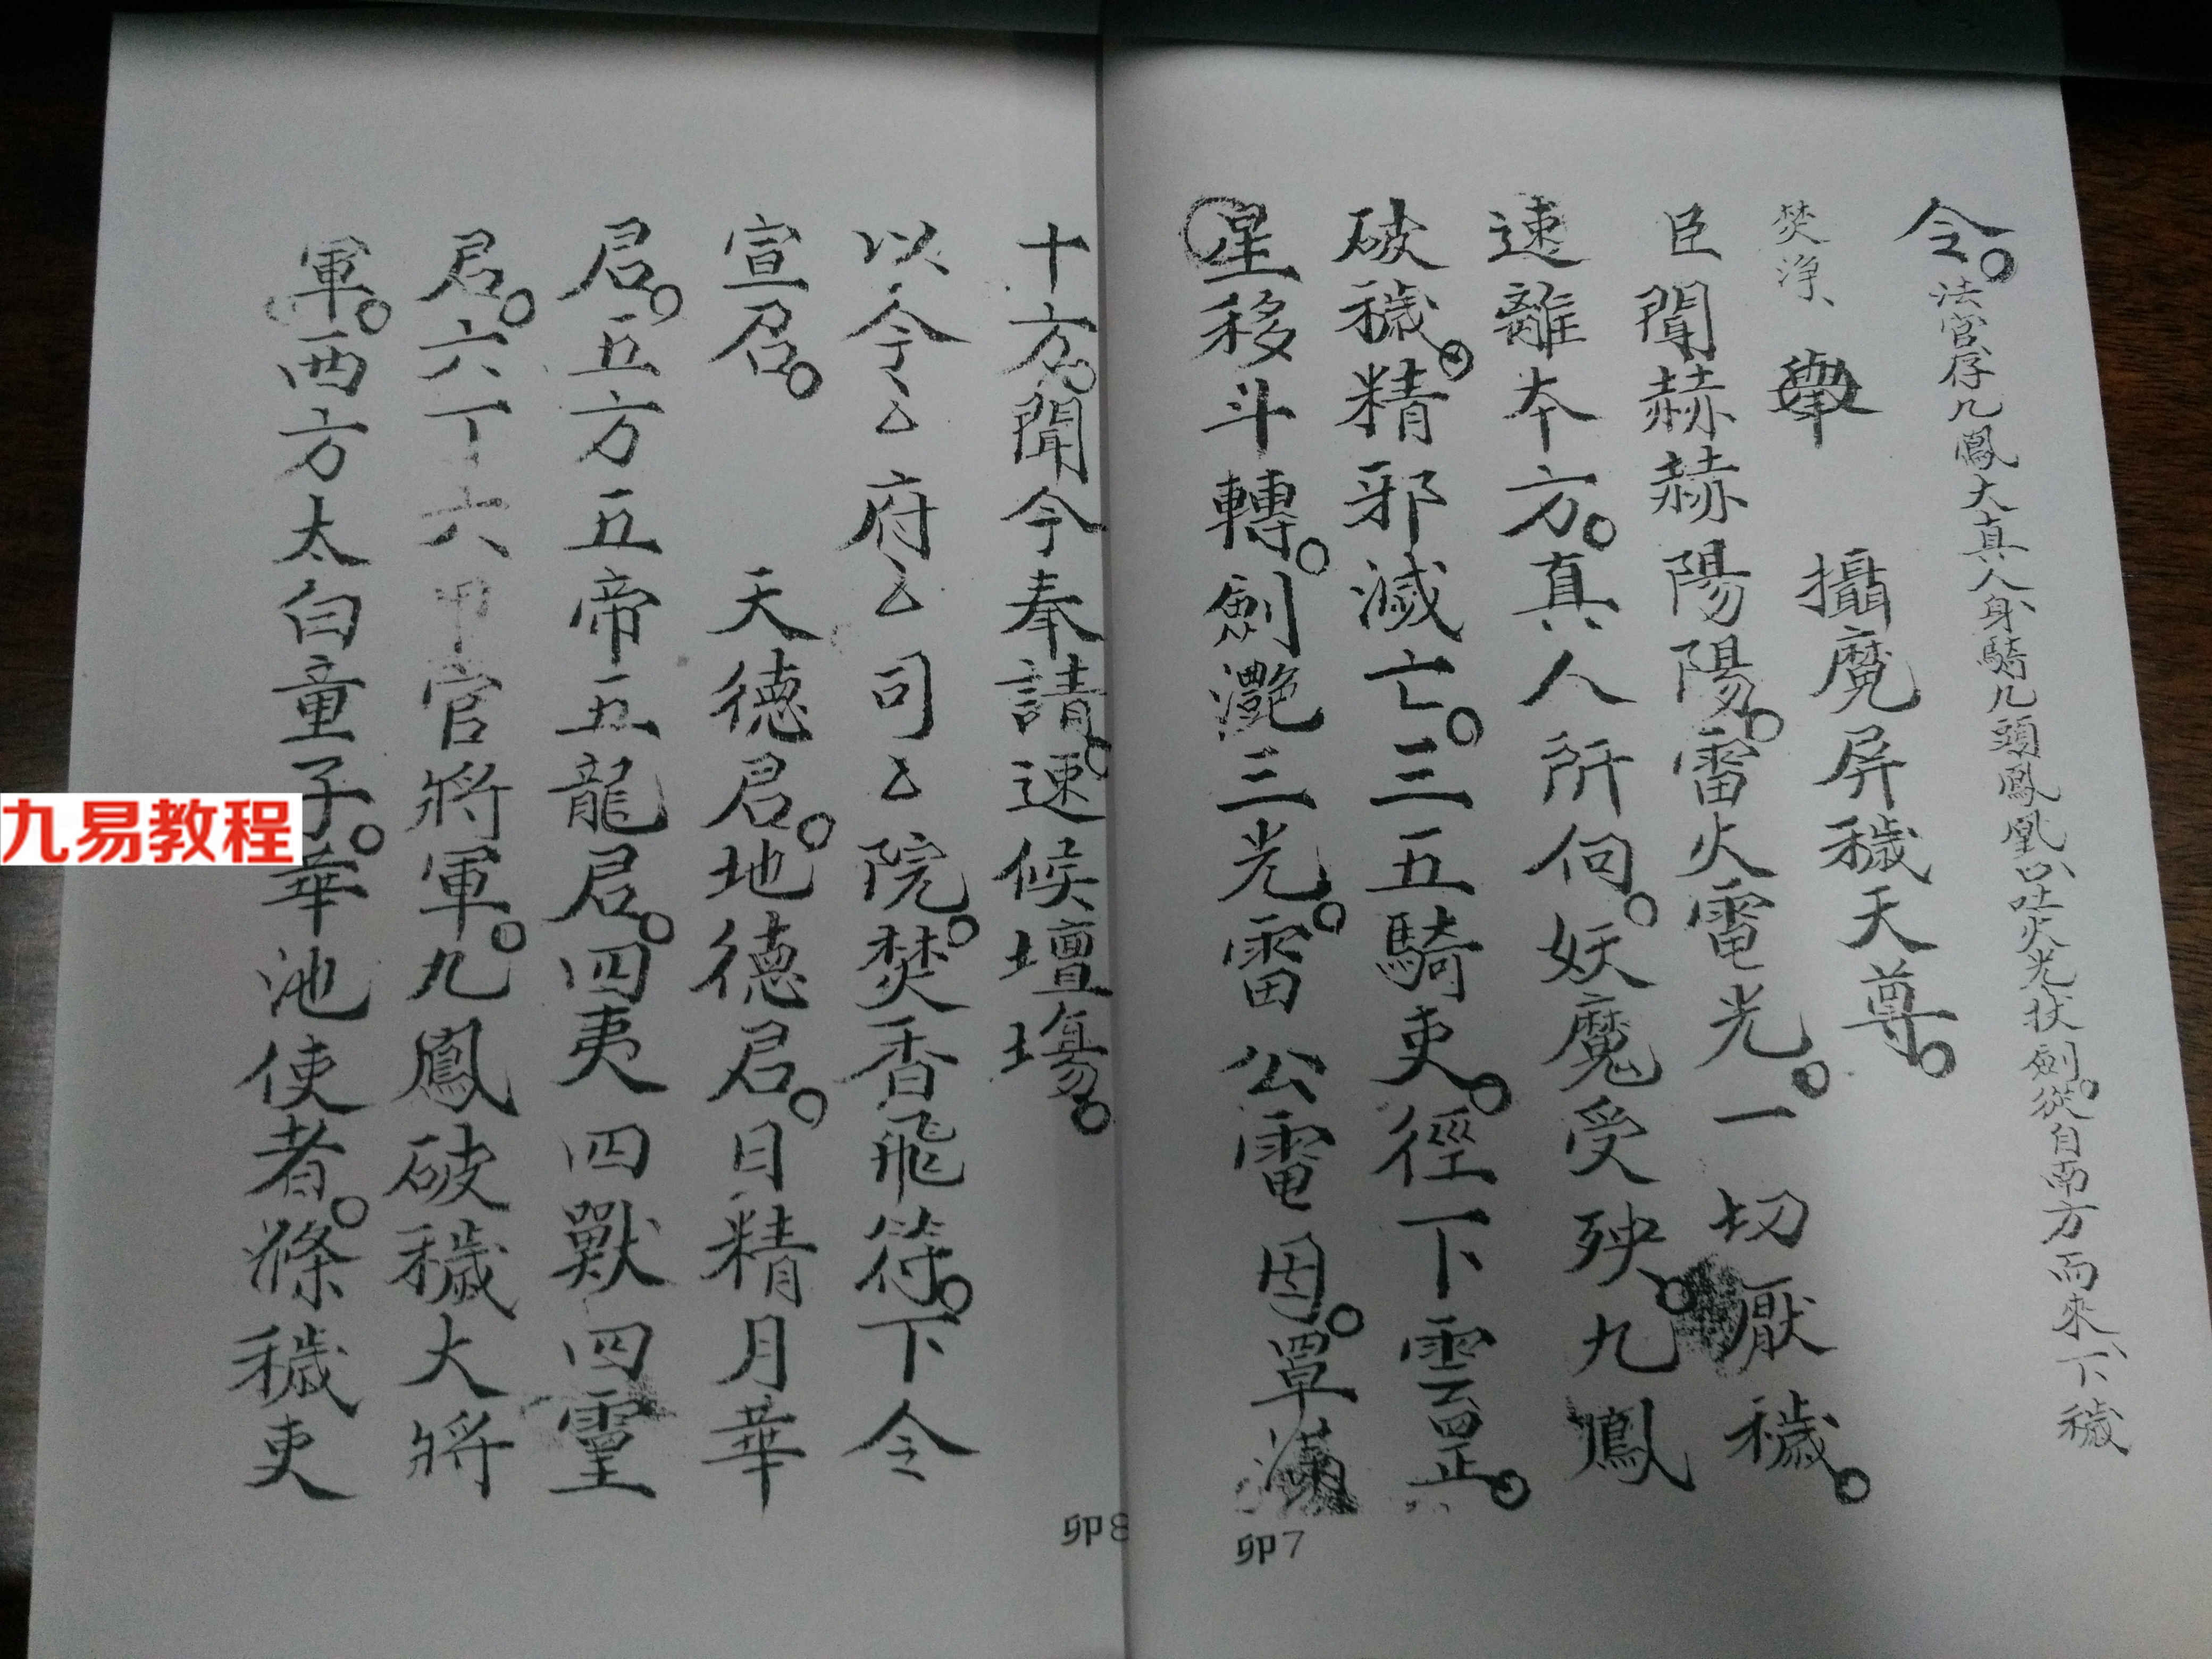 令。法官存九鳳大真人身騎九頭鳳凰口吐火光狀劍。從自南方而來、下穢
焚淨、舉　攝魔屏穢天尊。
臣聞赫赫陽陽。雷火電光。一切厭穢。
速離本方。真人所伺。妖魔受殃。九鳳
破穢。精邪滅亡。三五騎吏。徑下雲罡。
星移斗轉。劍灔三光。雷公電母。罩滿
卯7
十方。聞今奉請。速候壇場。
以今〻府〻司〻院。焚香飛符。下令
宣召。　天德君。地德君。日精月華
君。五方五帝五龍君。四夷四獸四靈
君。六丁六甲官將軍。九鳳破穢大將
軍。西方太白童子。華池使者。滌穢吏
卯8
九易教程